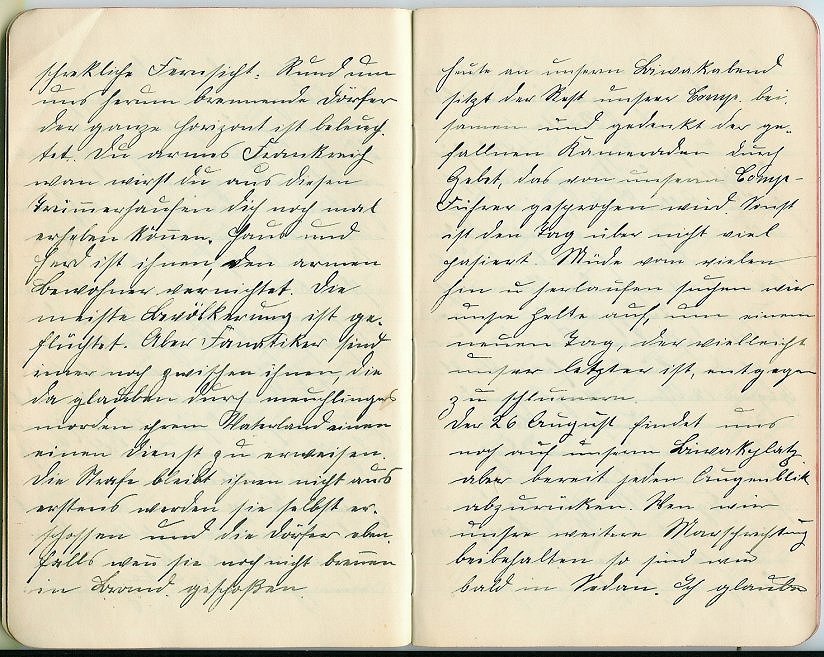 schrekliche Fernsicht. Rund um
uns herum brennende Dörfer
der ganze Horizont ist beleuch-
tet. Du armes Frankreich
wan wirst du aus diesen
Trümmerhaufen dich noch mal
erheben können. Haus und
Herd ist ihnen, den armen
Bewohner vernichtet. Die
meiste Bevölkerung ist ge-
flüchtet. Aber Fanatiker sind
imer noch zwischen ihnen, die
da glauben durch meuchlings
morden ihrem Vaterland einen
einen Dienst zu erweisen.
Die Strafe bleibt ihnen nicht aus
erstens werden sie selbst er-
schossen und die Dörfer eben
falls wenn sie noch nicht brennen
in Brand geschoßen
heute an unsern Biwakabend
sitzt der Rest unserer Comp. bei
samen und gedenkt der ge-
fallnen Kameraden durch
Gebet, das von unserm Comp-
Führer gesprochen wird. Sonst
ist den Tag über nicht viel
pasiert. Müde vom vielen
hin u herlaufen suchen wir
unsre Zelte auf, um einem
neuen Tag, der vielleicht
unser letzter ist, entgegen
zu schlumern.
Der 26 August findet uns
noch auf unserm Biwakplatz
aber bereit jeden Augenblik
abzurücken. Wen wir
unsre weitere Marschrichtung
beibehalten so sind wir
bald in Sedan. Ich glaube